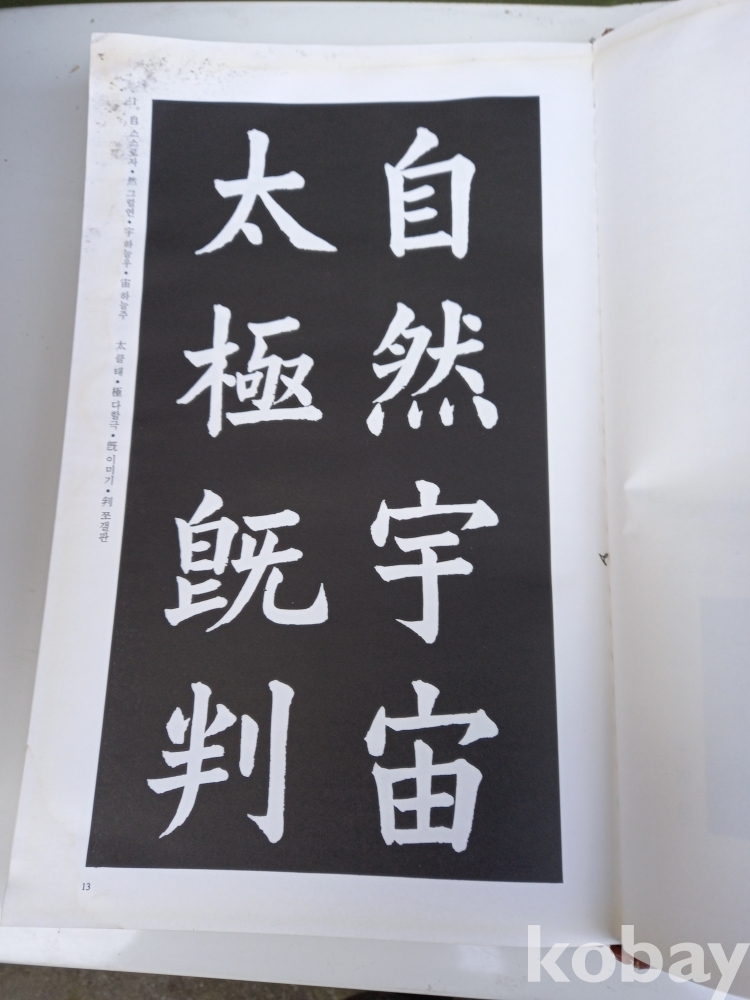 自然宇宙
太極旣判
1. 自 스스로자 • 然 그럴연 • 宇 하늘우 • 宙 하늘주 太 클태 • 極 다할극 • 旣 이미기 • 判 쪼갤판
13
kobay